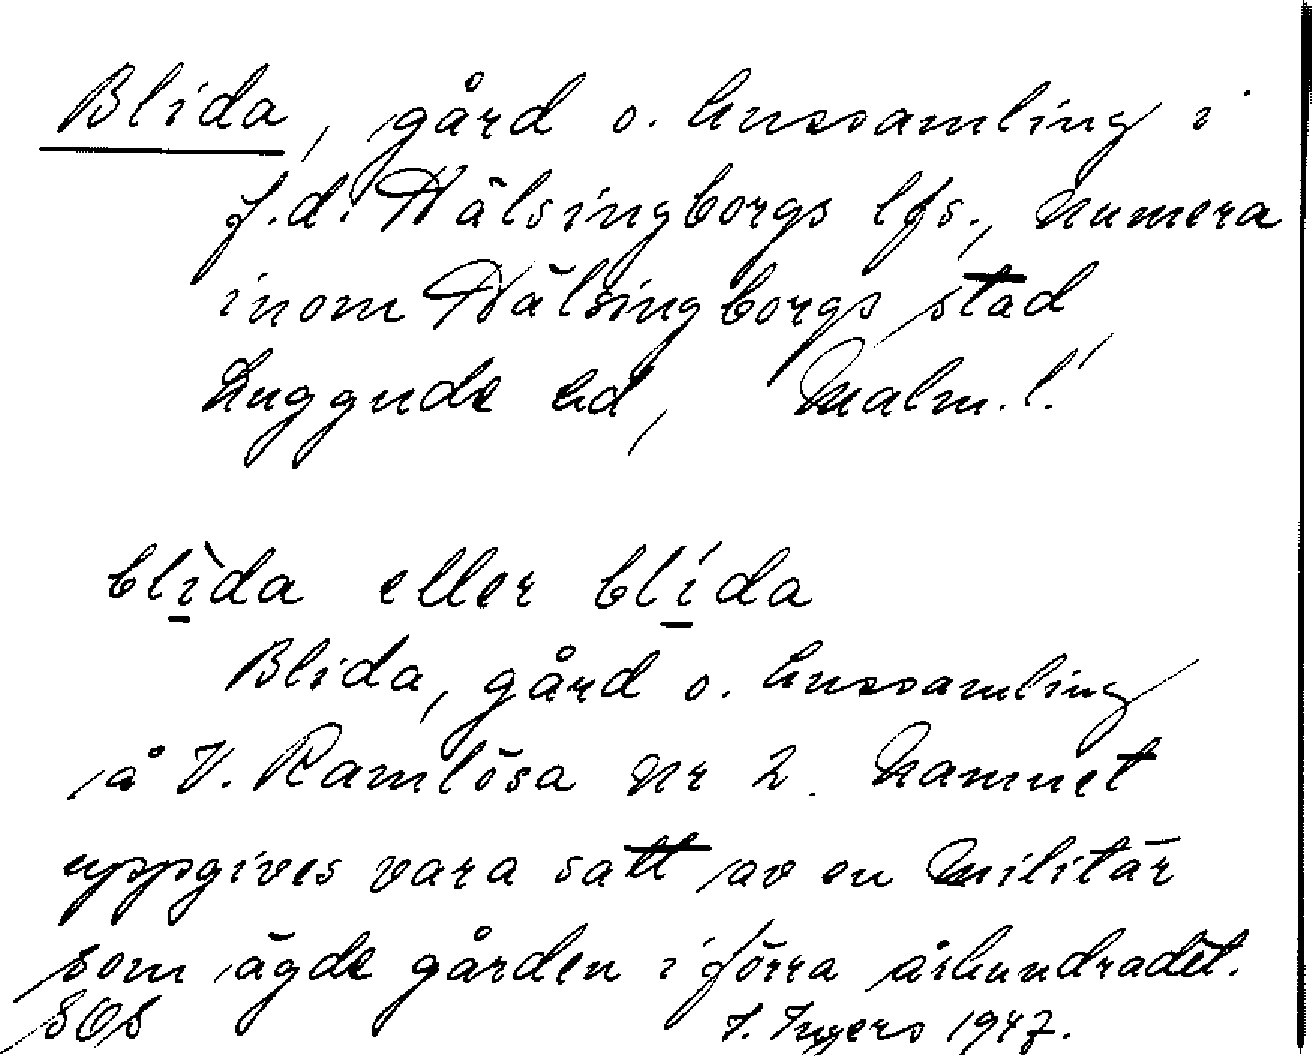 Blida, gård o. hussamling i
f.d. Hälsingborgs lfs., numera
inom Hälsingborgs stad
Luggude hd, Malm. l.
blìda eller blída
Blida, gård o. hussamling
å V. Ramlösa nr 2. Namnet
uppgives vara satt av en militär
som ägde gården i förra århundradet.
SOS I. Ingers 1947.